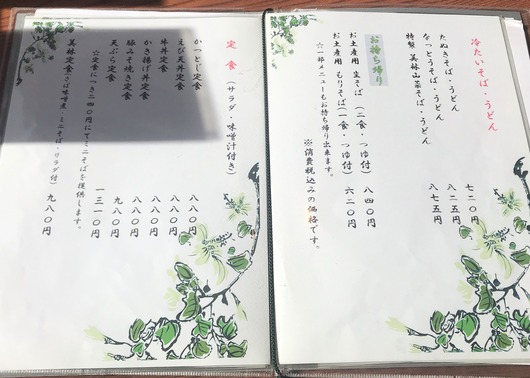 冷たいそば・うどん
たぬきそば・うどん 七二〇円
なっとうそば・うどん 八二五円
特製 美林山菜そば・うどん 八七五円
お持ち帰り
お土産用 皇そば (二食・つゆ付) 八四〇円
お土産用 もりそば(一食・つゆ付) 六二〇円
☆一部メニューもお持ち帰り出来ます。
※消費税込みの価格です。
定食(サラダ・味噌汁付き)
かつとじ定食 八八〇円
えび天丼定食 八八〇円
牛丼定食 八八〇円
かき揚げ丼定食 八八〇円
豚みそ焼き定食 九八〇円
天ぷら定食 一三一〇円
☆定食につき二四〇円にてミニそばを提供します。
美林定食(さば味噌煮・ミニそば・サラダ付) 九八〇円